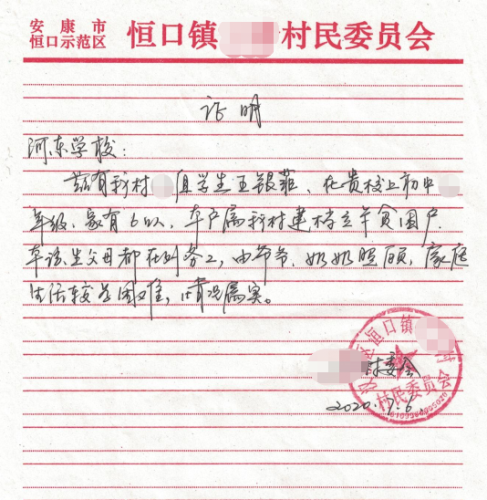 安康市
恒口示范区
恒口镇 村民委员会
证明
河东学校:
兹有新村 组学生王银菲、在贵校上初中
年级、家有6口人, 本户属新村建档立卡贫困户.
本该生父母都在外务工, 由爷爷、奶奶照顾, 家庭
生活较为困难, 情况属实。
村委会
2020.7.6
恒口镇
村民委员会